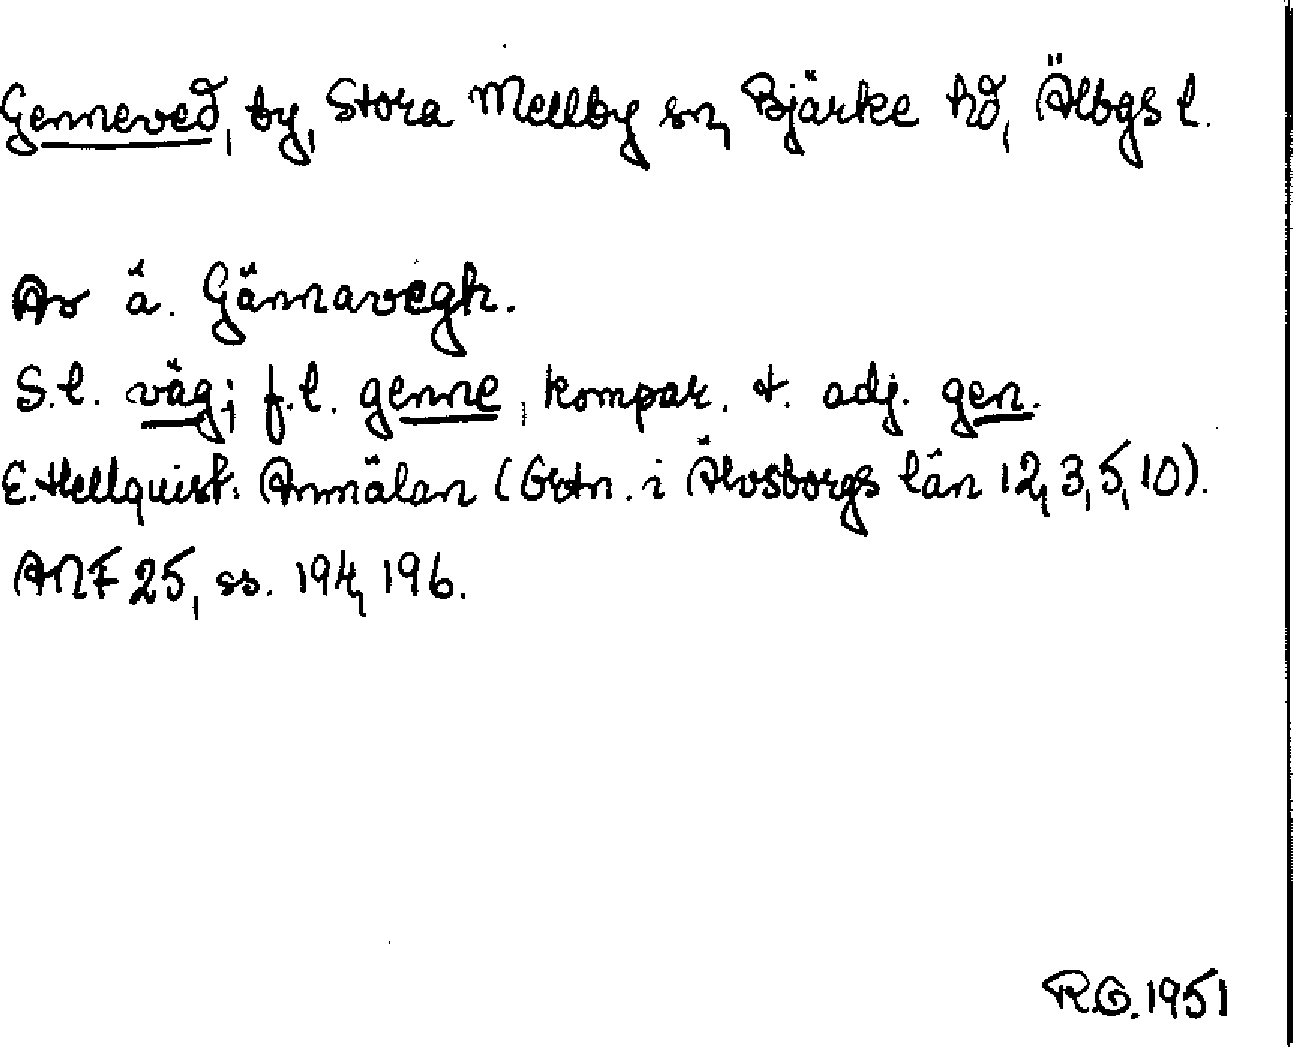 Genneved, by, Stora Mellby sn, Bjärke hd, Älbgs l.
Av ä. Gännavegh.
S.l. väg; f.l. genne, kompar. t. adj. gen.
E. Hellquist: Anmälan (Ortn. i Älvsborgs län 12, 3, 5, 10).
ANF 25, ss. 194, 196.
R.O. 1951